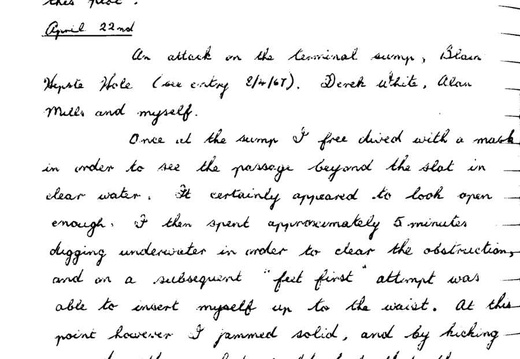 this
April 22nd
An attack on the terminal sump, Blaen
Hepste Hole (see entry 2/4/67). Derek White, Alan
Mills and myself.
Once at the sump I free dived with a mask
in order to see the passage beyond the slot in
clear water. It certainly appeared to look open
enough. I then spent approximately 5 minutes
digging underwater in order to clear the obstruction,
and on a subsequent "feet first" attempt was
able to insert myself up to the waist. At this
point however I jammed solid, and by kicking